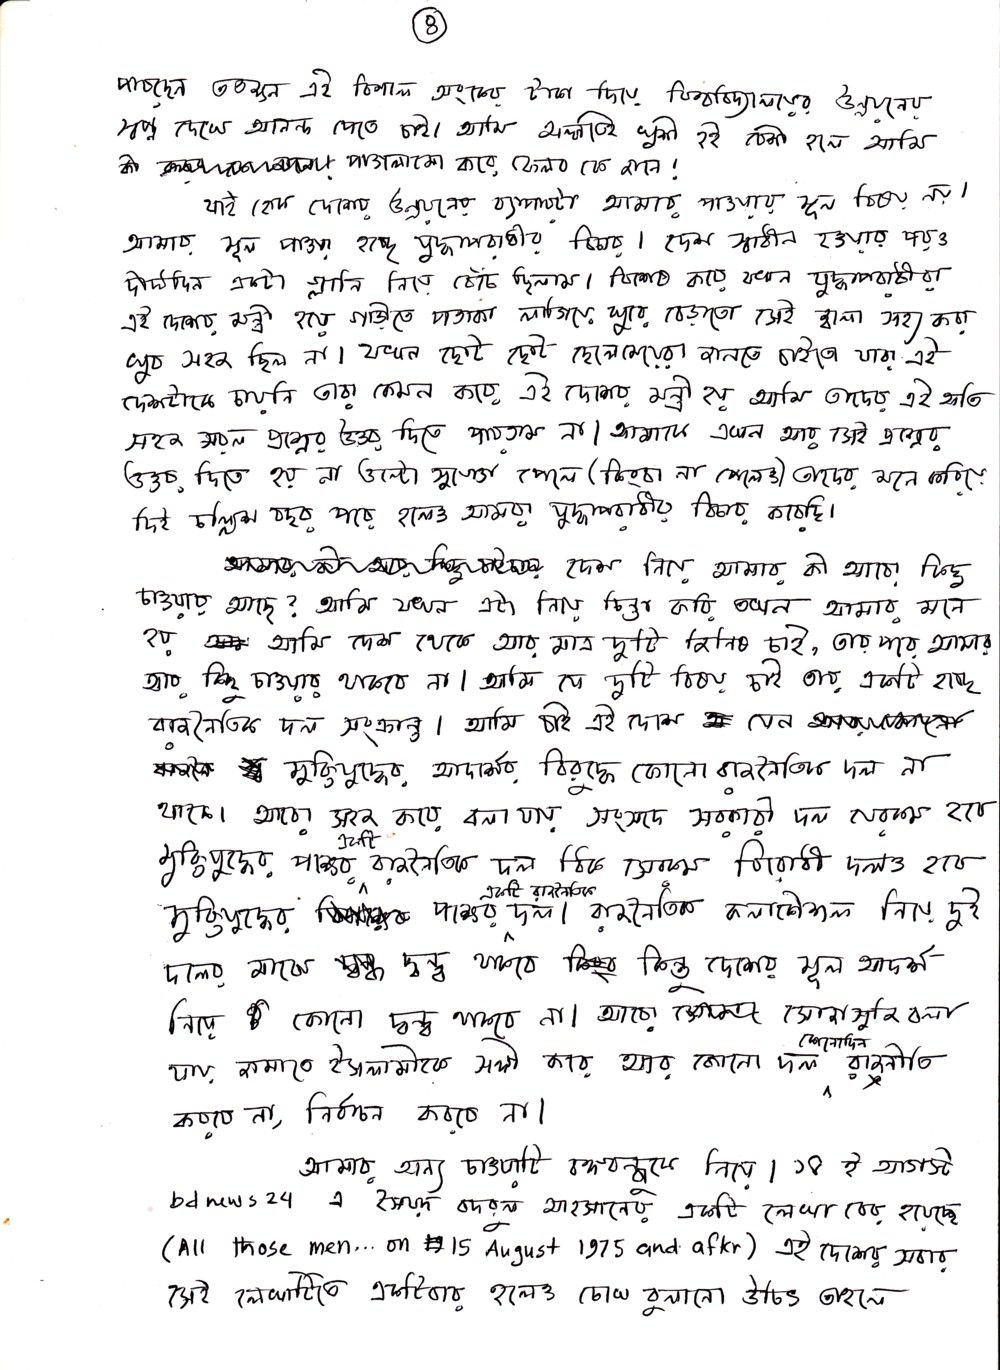 ৪
পারছেন ততক্ষণ এই বিশাল অংকের টাকা দিয়ে বিশ্ববিদ্যালয়ের উন্নয়নের
স্বপ্ন দেখে আনন্দ পেতে চাই। আমি অল্পতেই খুশী হই বেশী হলে আমি
কী পাগলামো করে ফেলব কে জানে!
যাই হোক দেশের উন্নয়নের ব্যাপারটা আমার পাওয়ার মূল বিষয় নয়।
আমার মূল পাওয়া হচ্ছে যুদ্ধাপরাধীর বিচার। দেশ স্বাধীন হওয়ার পরও
দীর্ঘদিন একটা গ্লানি নিয়ে বেঁচে ছিলাম। বিশেষ করে যখন যুদ্ধাপরাধীরা
এই দেশের মন্ত্রী হয়ে গাড়ীতে পতাকা লাগিয়ে ঘুরে বেড়াতো সেই জ্বালা সহ্য করা
খুব সহজ ছিল না। যখন ছোট ছোট ছেলেমেয়েরা জানতে চাইতো যারা এই
দেশটাকে চায়নি তারা কেমন করে এই দেশের মন্ত্রী হয় আমি তাদের এই অতি
সহজ সরল প্রশ্নের উত্তর দিতে পারতাম না। আমাকে এখন আর সেই প্রশ্নের
উত্তর দিতে হয় না উল্টো সুযোগ পেলে (কিংবা না পেলেও) তাদের মনে করিয়ে
দিই চল্লিশ বছর পরে হলেও আমরা যুদ্ধাপরাধীর বিচার করেছি।
দেশ নিয়ে আমার কী আরো কিছু
চাওয়ার আছে? আমি যখন এটা নিয়ে চিন্তা করি তখন আমার মনে
হয় আমি দেশ থেকে আর মাত্র দুটি জিনিষ চাই, তারপরে আমার
আর কিছু চাওয়ার থাকবে না। আমি যে দুটি বিষয় চাই তার একটি হচ্ছে
রাজনৈতিক দল সংক্রান্ত। আমি চাই এই দেশে যেন
মুক্তিযুদ্ধের আদর্শের বিরুদ্ধে কোনো রাজনৈতিক দল না
থাকে। আরো সহজ করে বলা যায় সংসদে সরকারী দল যেরকম হবে
মুক্তিযুদ্ধের পক্ষের একটি রাজনৈতিক দল ঠিক সেরকম বিরোধী দলও হবে
মুক্তিযুদ্ধের পক্ষের একটি রাজনৈতিক দল। রাজনৈতিক কলাকৌশল নিয়ে দুই
দলের মাঝে দ্বন্দ্ব থাকবে কিন্তু দেশের মূল আদর্শ
নিয়ে কোনো দ্বন্দ্ব থাকবে না। আরো সোজাসুজি বলা
যায় জামাতে ইসলামীকে সঙ্গী করে আর কোনো দল কোনোদিন রাজনীতি
করবে না, নির্বাচন করবে না।
আমার অন্য চাওয়াটি বঙ্গবন্ধুকে নিয়ে। ১৪ ই আগস্ট
bdnews24 এ সৈয়দ বদরুল আহসানের একটি লেখা বের হয়েছে
(All those men... on 15 August 1975 and after) এই দেশের সবার
সেই লেখাটিতে একটিবার হলেও চোখ বুলানো উচিত তাহলে